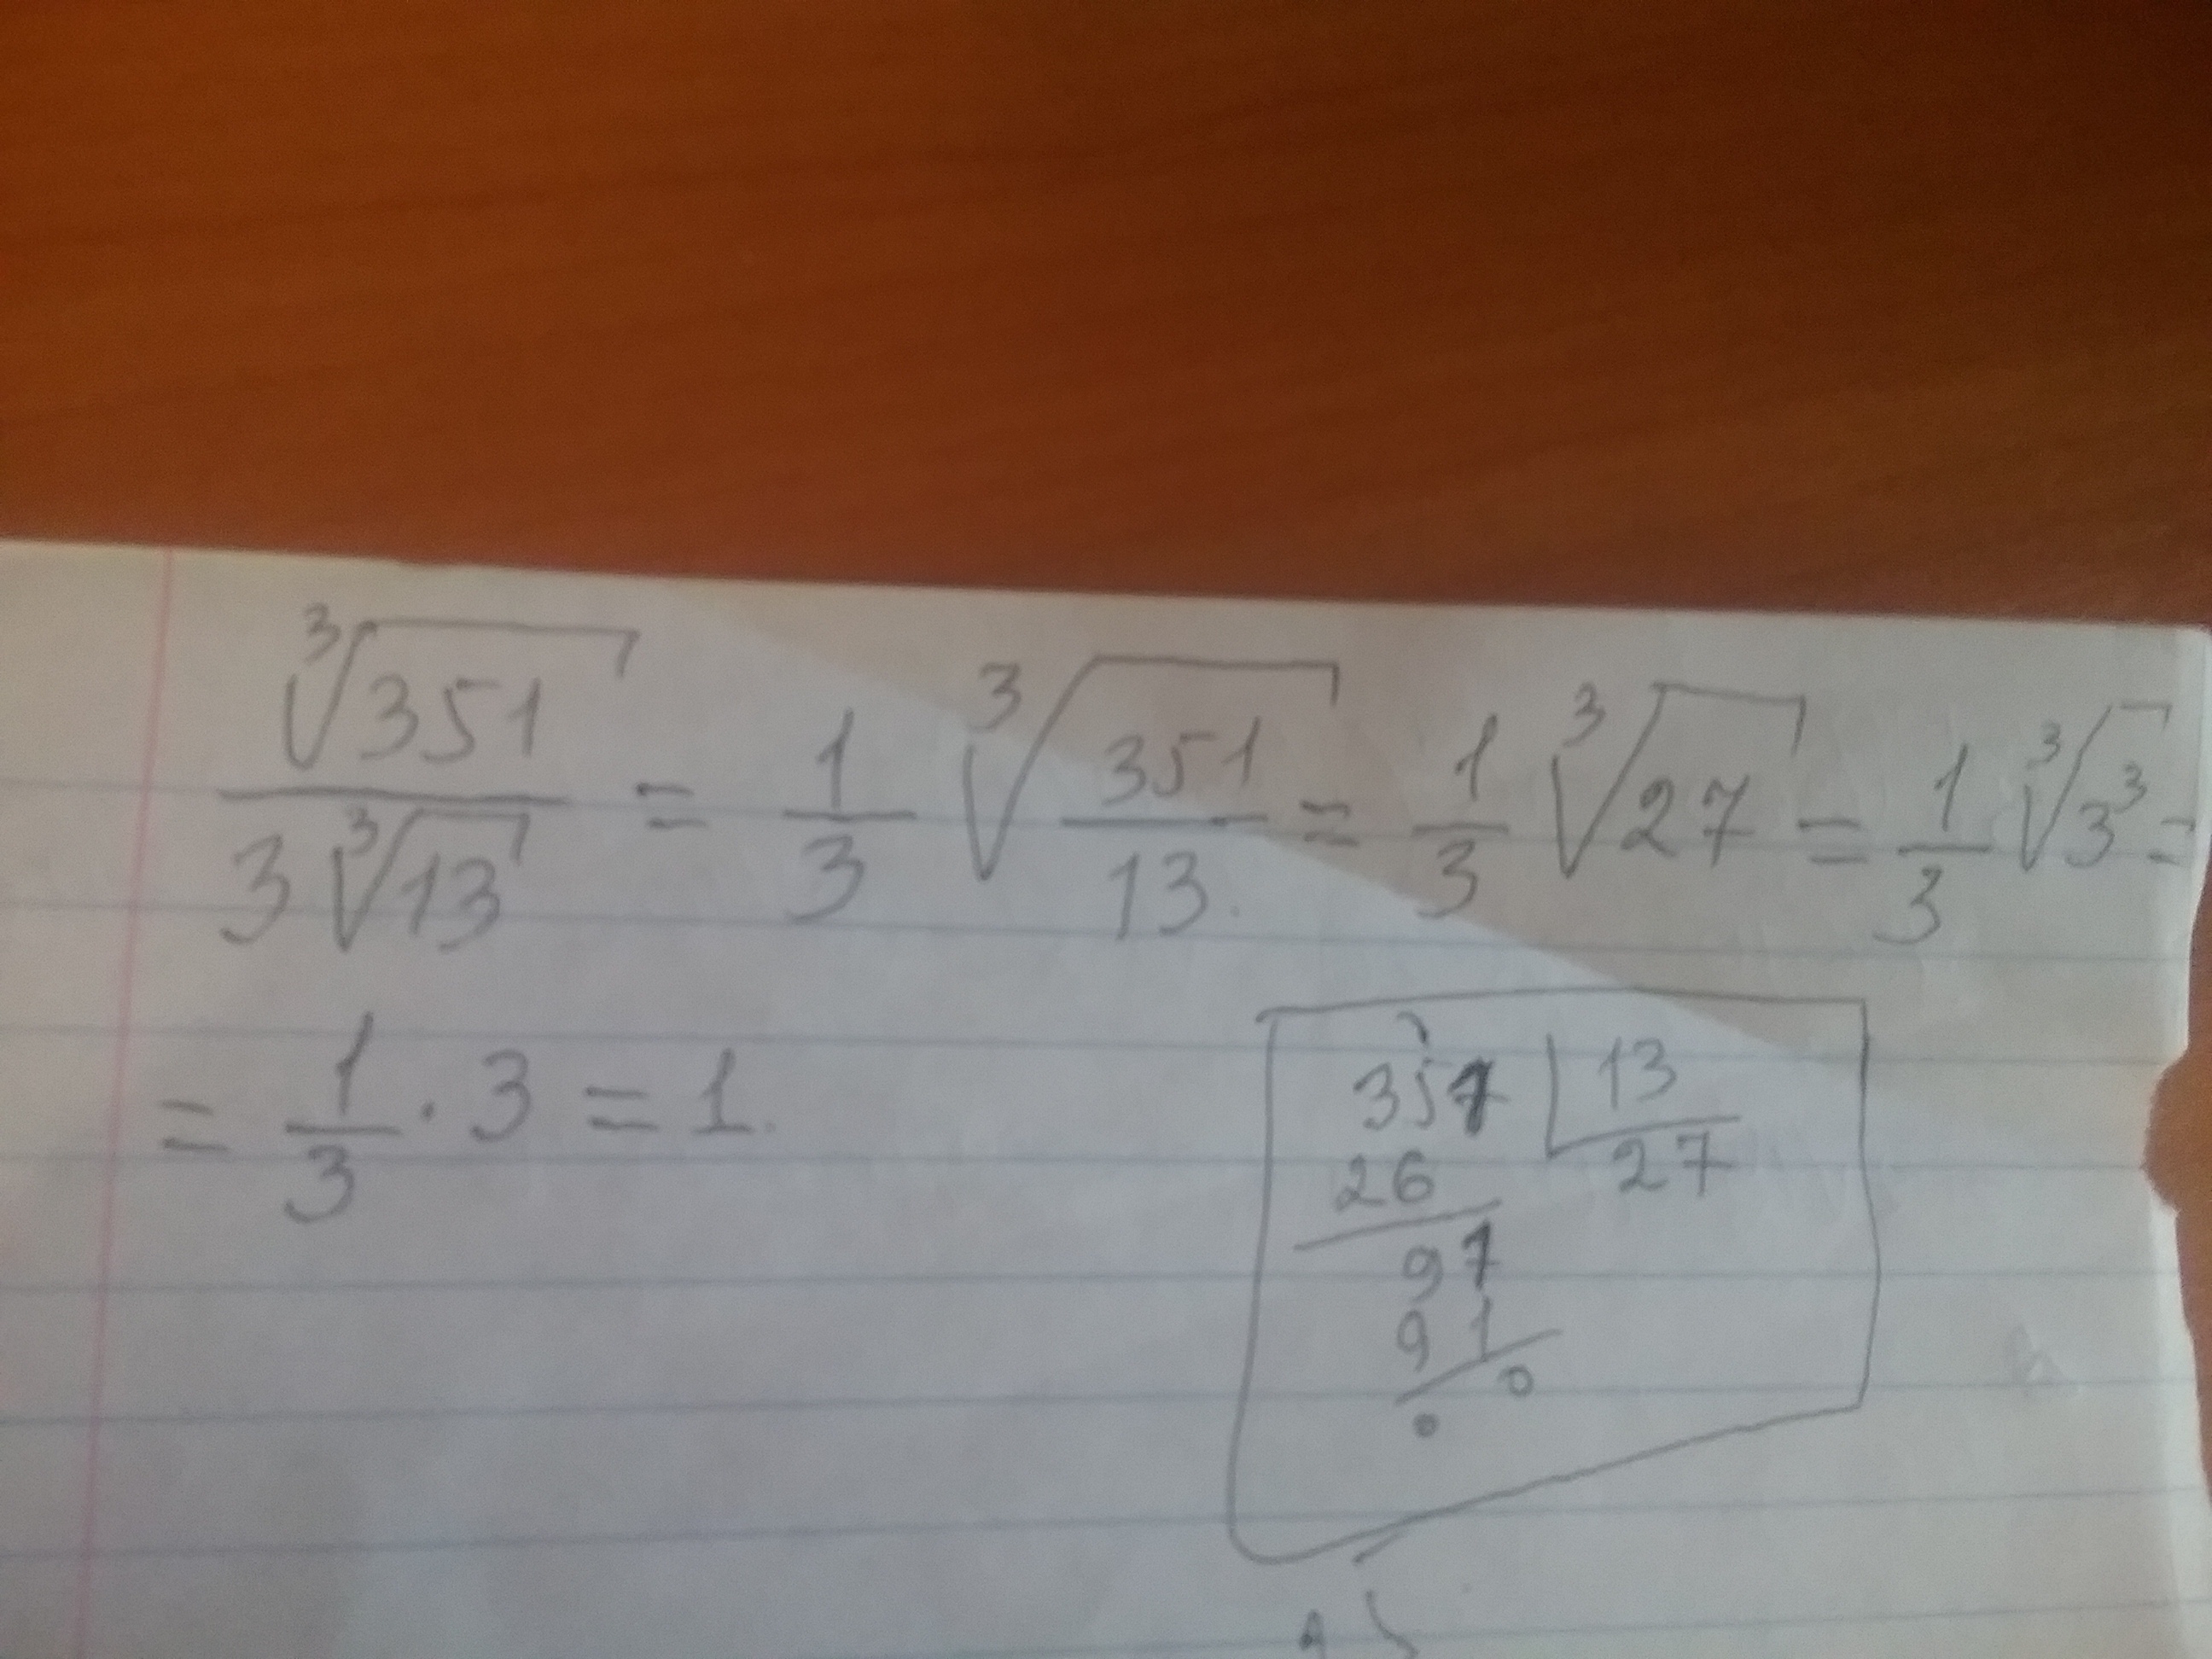 ∛351 / 3∛13 = 1/3 ∛(351/13) = 1/3 ∛27 = 1/3 ∛3³ =
= 1/3 · 3 = 1.
351 | 13
26 | 27
91
91
0 0